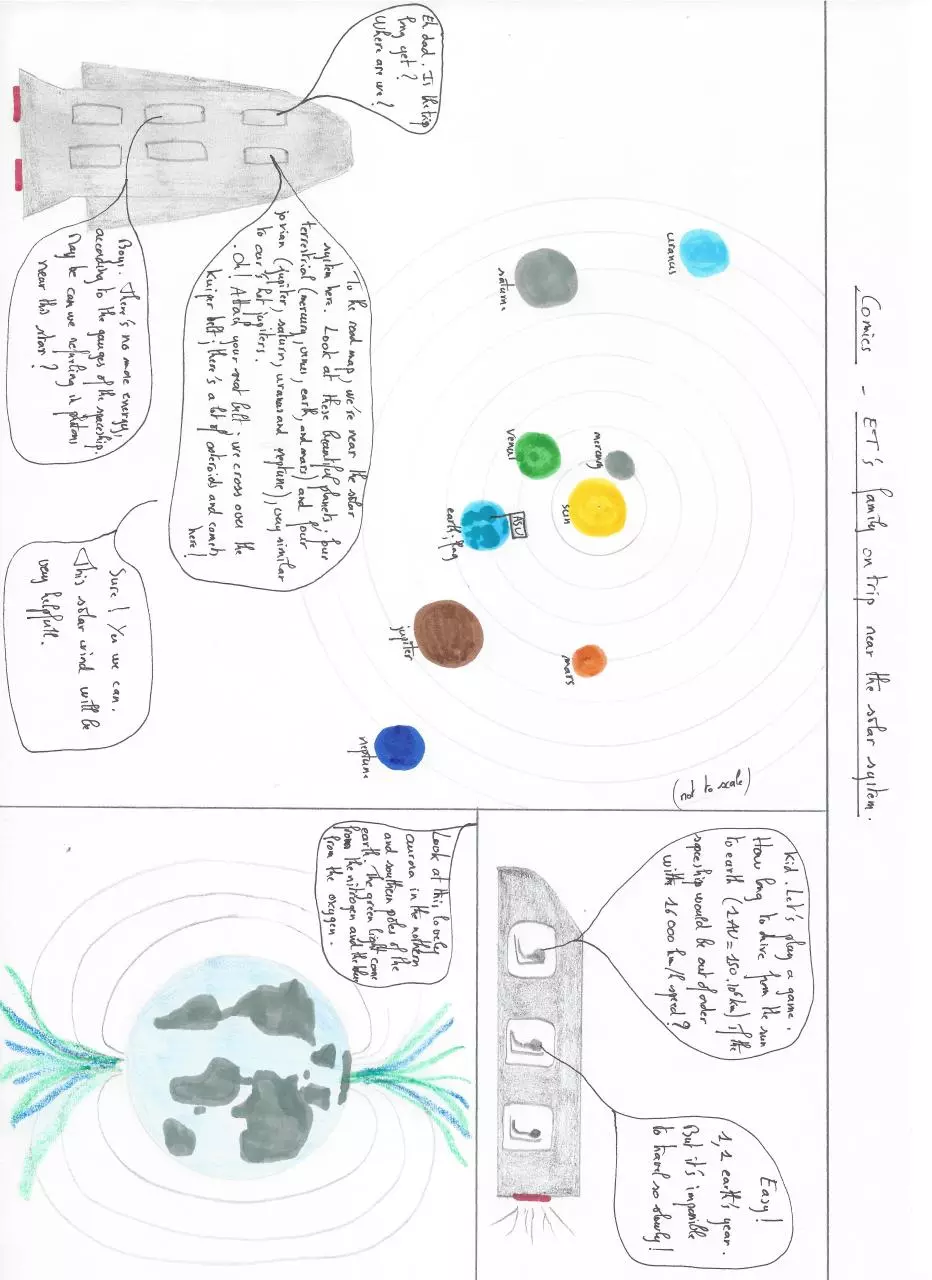 Comics - ET's family on trip near the solar system.
Eh dad. Is the trip
long yet?
Where are we?
To the road map, we're near the solar
system here. Look at these beautiful planets: four
terrestrial (mercury, venus, earth, and mars) and four
jovian (jupiter, saturn, uranus and neptune), very similar
to our's hot jupiters.
. Oh! Attach your seat belt; we cross over the
kuiper belt; there's a lot of asteroids and comets
here!
Boys. There's no more energy,
according to the gauges of the spaceship.
May be can we refueling in photons
near this star?
Sure! Yes we can.
This solar wind will be
very helpfull.
uranus
saturne
mercury
venus
sun
ASU
earth;
mars
jupiter
neptune
(not to scale)
Kid. Let's play a game.
How long to drive from the sun
to earth (1AU = 150.10⁶km) if the
spaceship would be out of order
with 16000 km/h speed?
Easy!
1,1 earth's year.
But it's impossible
to travel so slowly!
Look at this lovely
aurora in the nothern
and southern poles of the
earth. The green light come
from the nitrogen and the blue
from the oxygen.